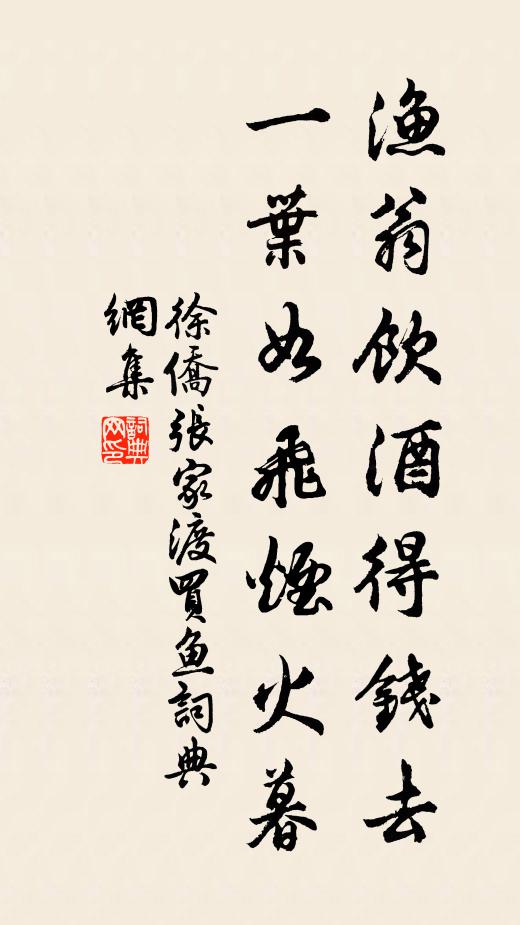 漁翁飲酒得錢去
一葉如飛煙火暮
徐僑張家渡買魚詞典
網集
詞典
网印